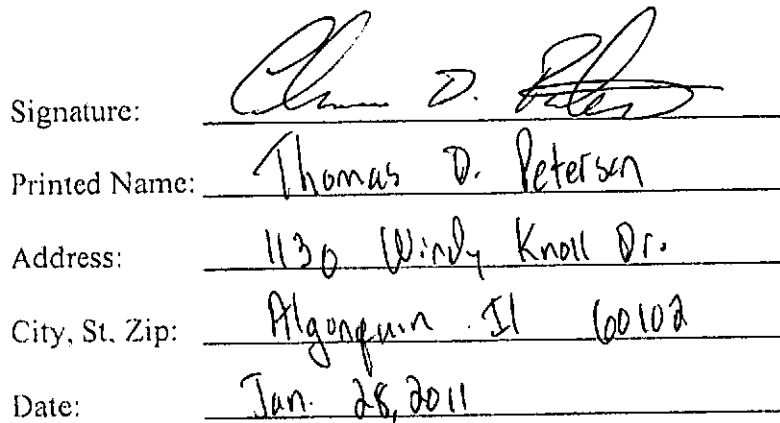 Signature: D.
Printed Name: Thomas D. Petersen
Address: 1130 Windy Knoll Dr.
City, St. Zip: Algonquin Il 60102
Date: Jan. 28, 2011